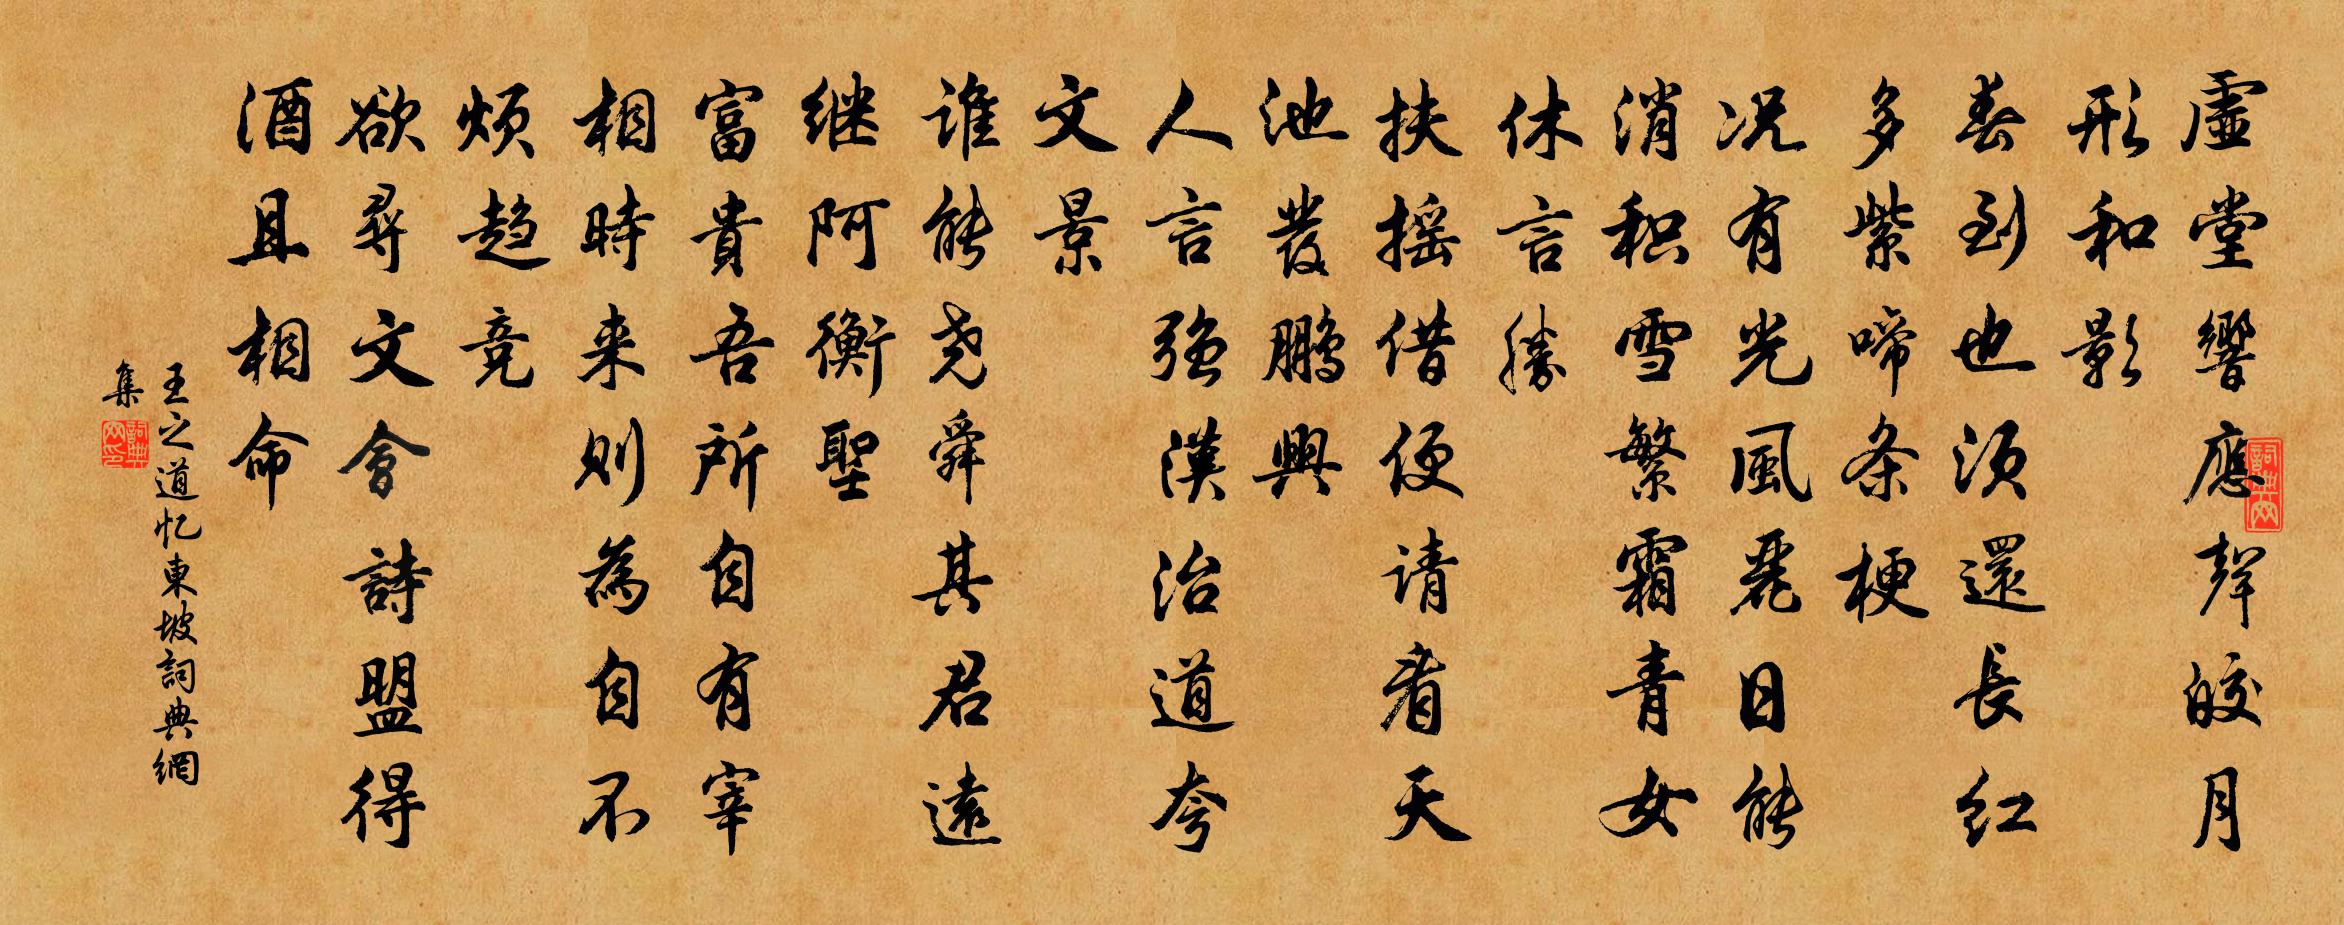 虛堂響應聲皎月
形和影
春到也須還長紅
多紫啼条梗
况有光風麗日能
消积雪繁霜青女
休言勝
扶摇借便请看天
池發鵬興
人言强漢治道夸
文景
谁能尧舜其君遠
继阿衡聖
富貴吾所自有宰
相時来则為自不
烦趋竞
欲尋文會詩盟得
酒且相命
王之道忆東坡詞典網
集
詞典网
詞典网印